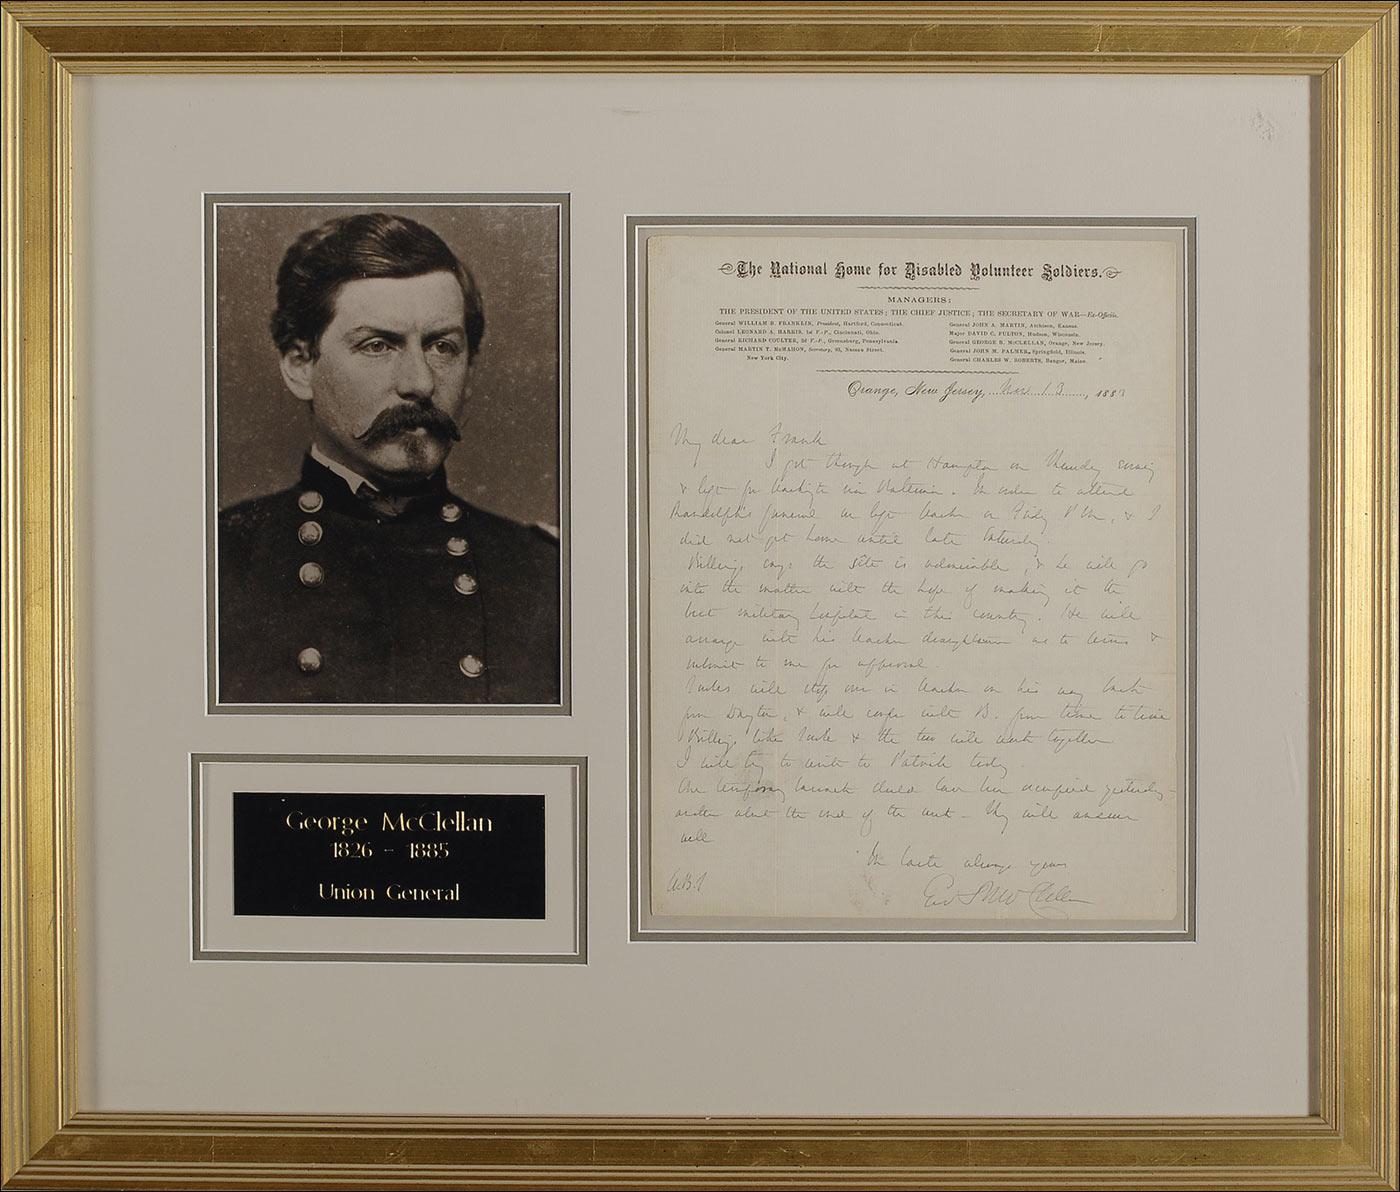 The National Home for Disabled Volunteer Soldiers.
MANAGERS:
THE PRESIDENT OF THE UNITED STATES; THE CHIEF JUSTICE; THE SECRETARY OF WAR—Ex-Officio.
General WILLIAM B. FRANKLIN, President, Hartford, Connecticut.
Colonel LEONARD A. HARRIS, 1st V.-P., Cincinnati, Ohio.
General RICHARD COULTER, 2d V.-P., Greensburg, Pennsylvania.
General MARTIN T. McMAHON, Secretary, 93, Nassau Street,
New York City.
General JOHN A. MARTIN, Atchison, Kansas.
Major DAVID C. FULTON, Hudson, Wisconsin.
General GEORGE B. McCLELLAN, Orange, New Jersey.
General JOHN M. PALMER, Springfield, Illinois.
General CHARLES W. ROBERTS, Bangor, Maine.
Orange, New Jersey, 13, 1883
My dear Frank
I got through at Hampton on Thursday evening
& left for via. In order to attend
funeral we left on Friday PM, & I
did not get home until late Saturday.
Billings says the site is admirable, & he will go
into the matter with the hope of making it the
best military hospital in this country. He will
arrange with his as to terms &
submit to me for approval.
will stop over in on his way back
from Dayton, & will confer with B. from time to time
Billings likes & the two will work together
I will try to write to Patrick today.
One temporary barrack should have been occupied yesterday
another about the end of the week - They will answer
well
In haste always yours
Geo B McClellan
George McClellan
1826 - 1885
Union General